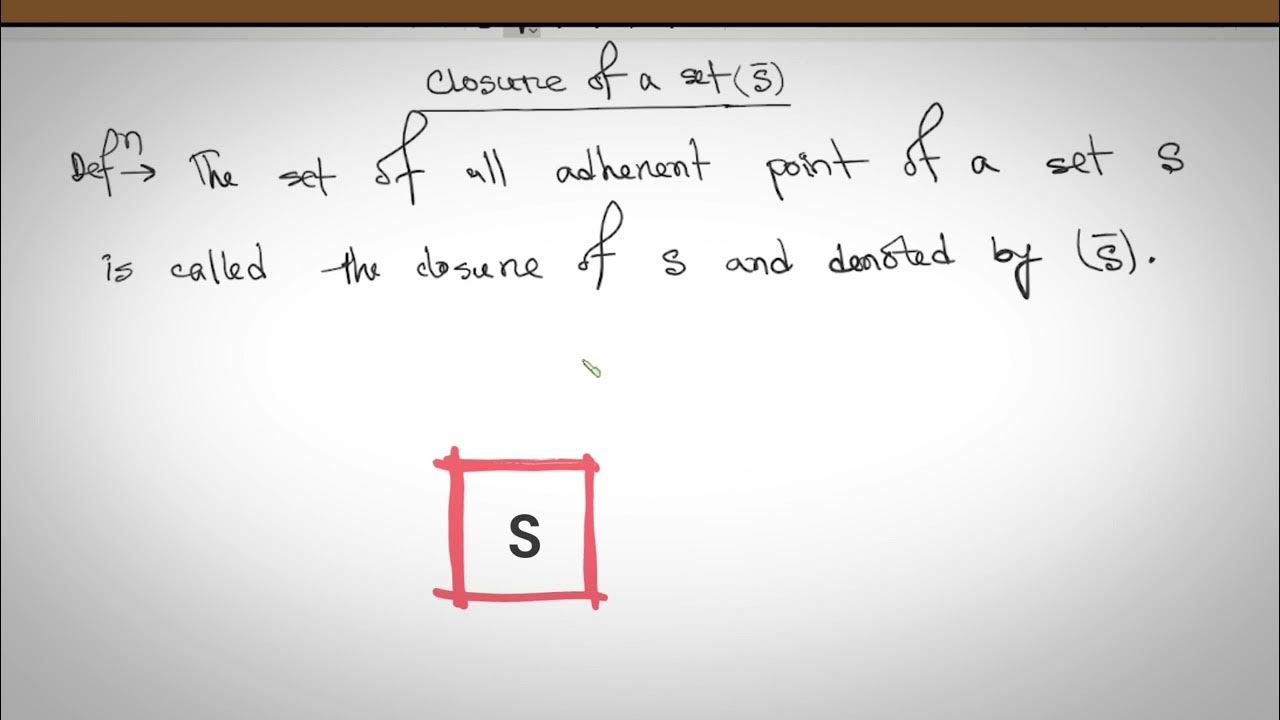 closure of a set (s̄)
Defⁿ → The set of all adherent point of a set s
is called the closure of s and denoted by (s̄).
S